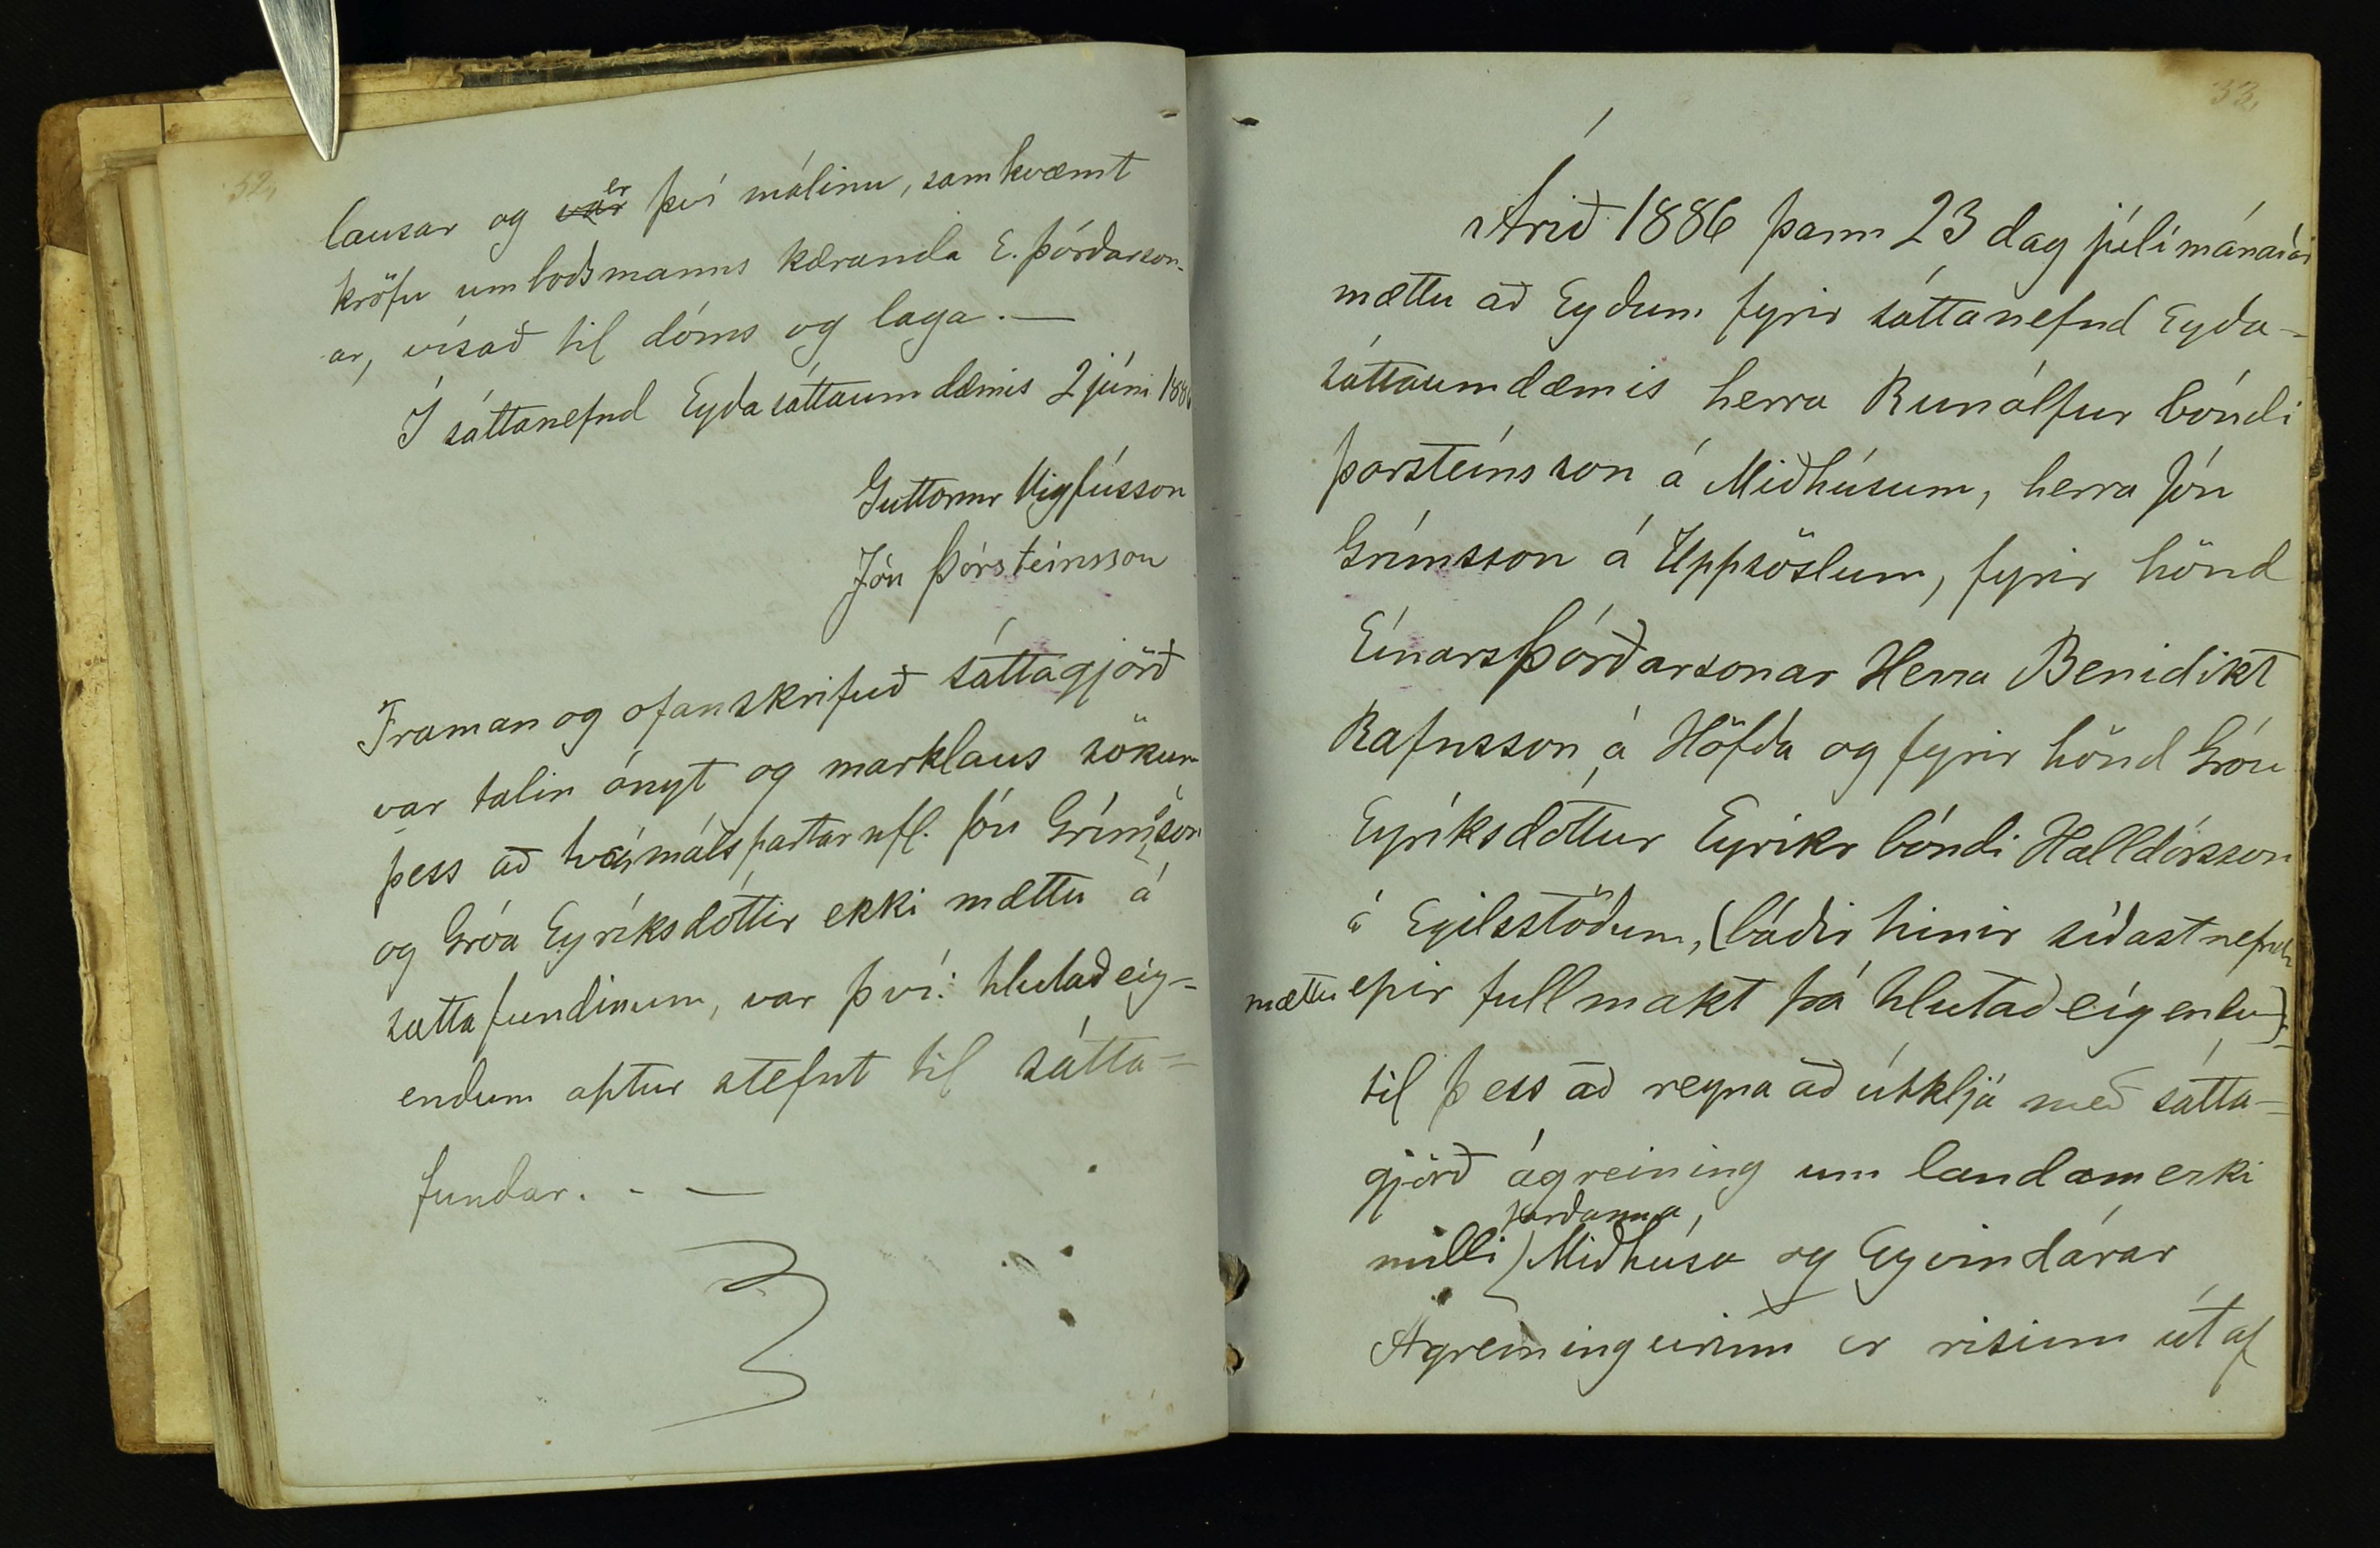 32,
lausar og er því málinu, samkvæmt
kröfu umboðsmanns kæranda E. Þórðarson-
ar, vísað til dóms og laga. —
Í sáttanefnd Eyðasáttaumdæmis 2 júní 1886
Guttormr Vigfússon
Jón Þórsteinsson
Framan og ofanskrifuð sáttagjörð
var talin ónyt og marklaus sökum
þess að tveir málspartar nfl. Jón Grímsson
og Gróa Eyríksdóttir ekki mættu á
sáttafundinum, var því: hlutaðeig=
endum aptur stefnt til sátta=
fundar. - —
33,
Árið 1886 þann 23 dag júlímánaðar
mættu að Eyðum fyrir sáttanefnd Eyða=
sáttaumdæmis herra Runólfur bóndi
Þorsteinsson á Miðhúsum, herra Jón
Grímsson á Uppsöslum, fyrir hönd
Einars Þórðarsonar Herra Benidikt
Rafnsson á Höfða og fyrir hönd Gróu
Eyríksdóttur Eyríkr bóndi Halldórsson
á Egilsstöðum, (báðir hinir síðastnefndu
mættu epir fullmakt frá hlutaðeigendum)
til þess að reyna að útkljá með sátta=
gjörð ágreining um landamerki
milli jarðanna, Miðhúsa og Eyvindárar
Agreiningurinn er risinn út af